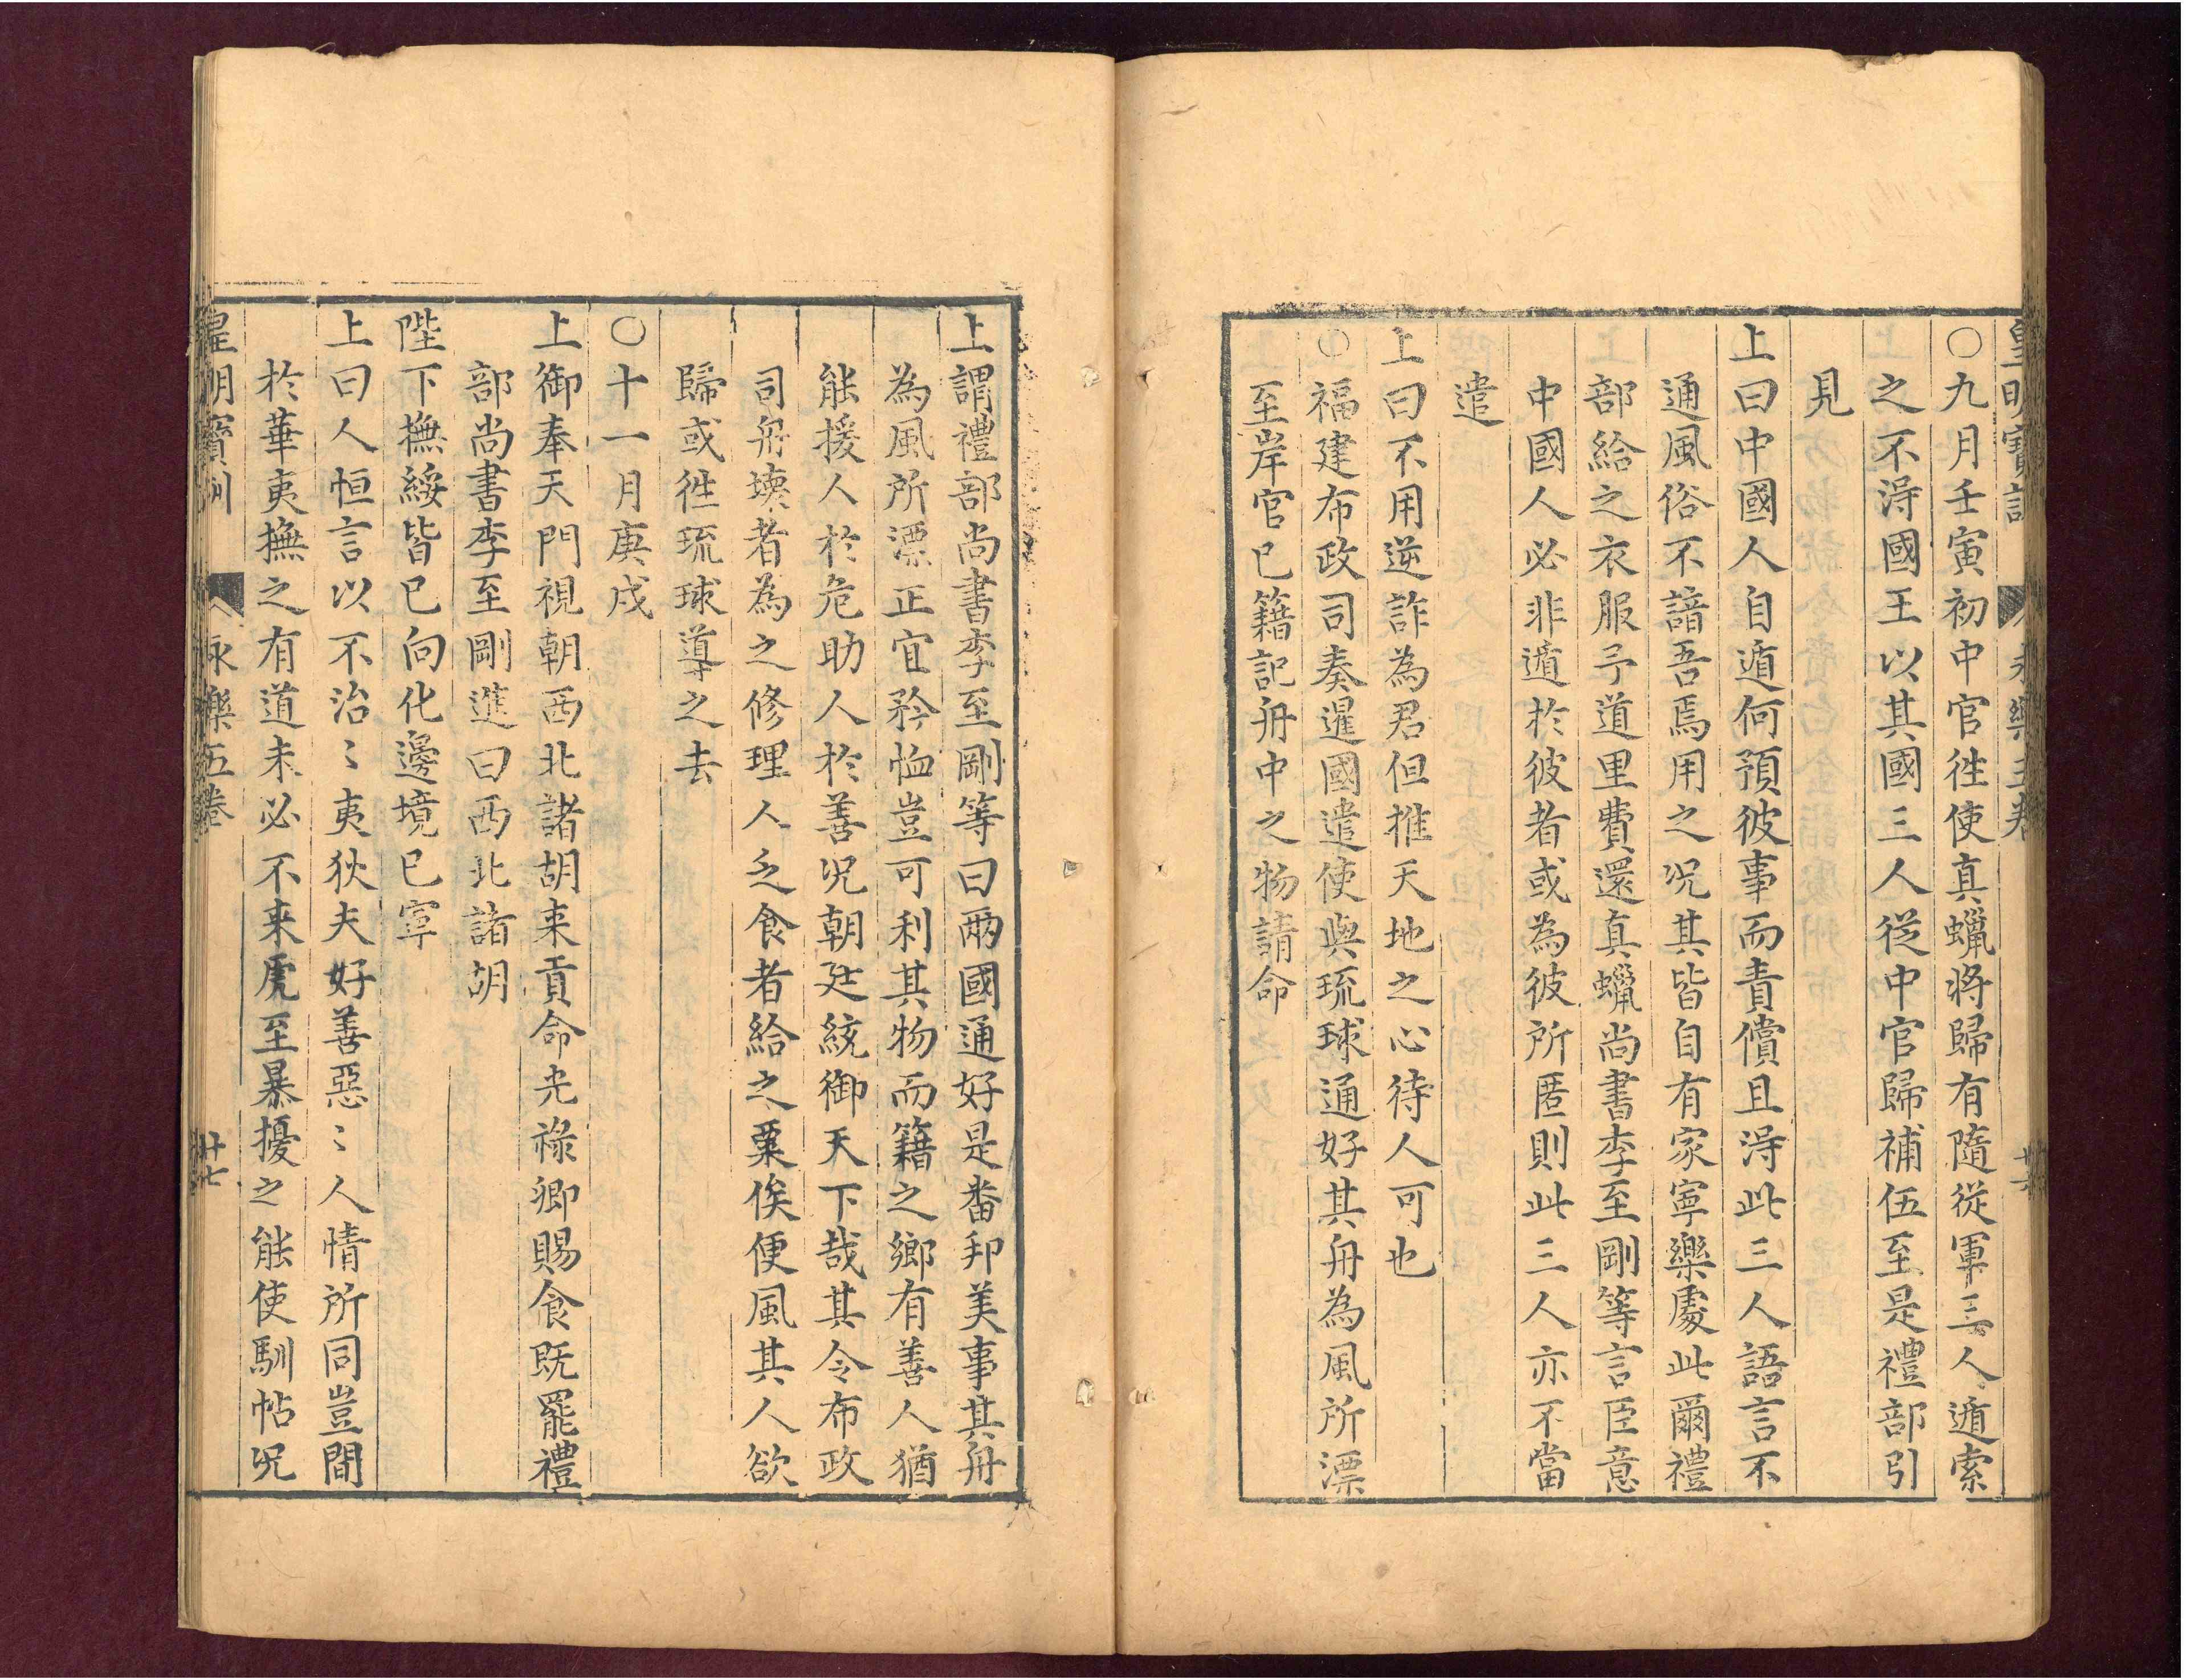 皇明寶訓 永樂五卷 廿六
○九月壬寅初中官徃使真蠟將歸有隨從軍三人遁索
之不淂國王以其國三人從中官歸補伍至是禮部引
見
上曰中國人自遁何預彼事而責償且淂此三人語言不
通風俗不諳吾焉用之况其皆自有家寧樂處此爾禮
部給之衣服予道里費還真蠟尚書李至剛等言臣意
中國人必非遁於彼者或為彼所匿則此三人亦不當
遣
上曰不用逆詐為君但推天地之心待人可也
○福建布政司奏暹國遣使與琉球通好其舟為風所漂
至岸官已籍記舟中之物請命
上謂禮部尚書李至剛等曰兩國通好是畨邦美事其舟
為風所漂正宜矜恤豈可利其物而籍之鄉有善人猶
能援人於危助人於善况朝廷統御天下哉其令布政
司舟壊者為之修理人乏食者給之粟俟便風其人欲
歸或徃琉球導之去
○十一月庚戌
上御奉天門視朝西北諸胡来貢命光祿卿賜食既罷禮
部尚書李至剛進曰西北諸胡
陛下撫綏皆已向化邊境已寧
上曰人恒言以不治〻夷狄夫好善惡〻人情所同豈間
於華夷撫之有道未必不来虎至暴擾之能使馴帖况
皇明寶訓 永樂五卷 廿七